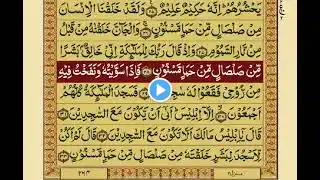 يَحْشُرُهُمْ اِنَّهٗ حَكِيْمٌ عَلِيْمٌ ۝ وَلَقَدْ خَلَقْنَا الْاِنْسَانَ
مِنْ صَلْصَالٍ مِّنْ حَمَاٍ مَّسْنُوْنٍ ۝ وَالْجَآنَّ خَلَقْنٰهُ
مِنْ نَّارِ السَّمُوْمِ ۝ وَاِذْ قَالَ رَبُّكَ لِلْمَلٰٓئِكَةِ اِنِّيْ خَالِقٌۢ بَشَرًا
مِّنْ صَلْصَالٍ مِّنْ حَمَاٍ مَّسْنُوْنٍ ۝ فَاِذَا سَوَّيْتُهٗ وَنَفَخْتُ فِيْهِ
مِنْ رُّوْحِيْ فَقَعُوْا لَهٗ سٰجِدِيْنَ ۝ فَسَجَدَ الْمَلٰٓئِكَةُ كُلُّهُمْ
اَجْمَعُوْنَ ۝ اِلَّآ اِبْلِيْسَ اَبٰٓى اَنْ يَّكُوْنَ مَعَ السّٰجِدِيْنَ ۝
قَالَ يٰٓاِبْلِيْسُ مَالَكَ اَلَّا تَكُوْنَ مَعَ السّٰجِدِيْنَ ۝ قَالَ لَمْ اَكُنْ
لِّاَسْجُدَ لِبَشَرٍ خَلَقْتَهٗ مِنْ صَلْصَالٍ مِّنْ حَمَاٍ مَّسْنُوْنٍ ۝